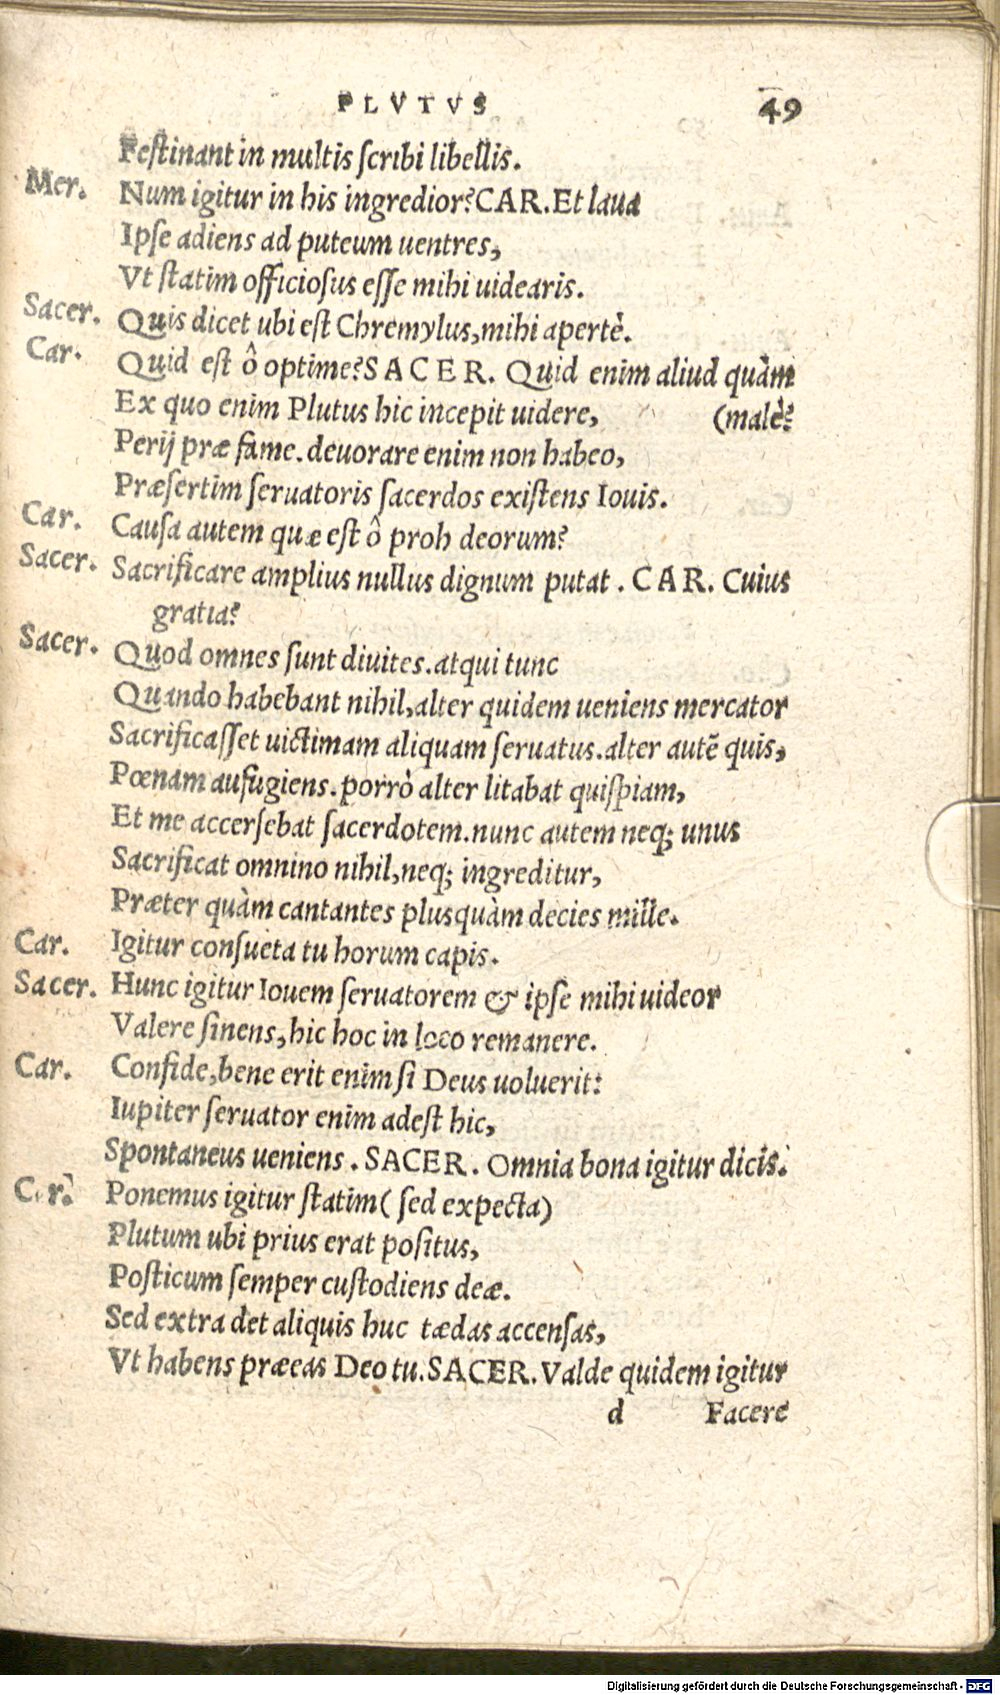 PLVTVS 49
Festinant in multis scribi libellis.
Mer. Num igitur in his ingredior? CAR. Et laua
Ipse adiens ad puteum uentres,
Vt statim officiosus esse mihi uidearis.
Sacer. Quis dicet ubi est Chremylus, mihi apertè.
Car. Quid est ô optime? SACER. Quid enim aliud quàm
Ex quo enim Plutus hic incepit uidere, (malè?
Perij præ fame. deuorare enim non habeo,
Præsertim seruatoris sacerdos existens Iouis.
Car. Causa autem quæ est ô proh deorum?
Sacer. Sacrificare amplius nullus dignum putat. CAR. Cuius
gratia?
Sacer. Quod omnes sunt diuites. atqui tunc
Quando habebant nihil, alter quidem ueniens mercator
Sacrificasset uictimam aliquam seruatus. alter autē quis,
Pœnam aufugiens. porrò alter litabat quispiam,
Et me accersebat sacerdotem. nunc autem neq; unus
Sacrificat omnino nihil, neq; ingreditur,
Præter quàm cantantes plusquàm decies mille.
Car. Igitur consueta tu horum capis.
Sacer. Hunc igitur Iouem seruatorem & ipse mihi uideor
Valere sinens, hic hoc in loco remanere.
Car. Confide, bene erit enim si Deus uoluerit:
Iupiter seruator enim adest hic,
Spontaneus ueniens. SACER. Omnia bona igitur dicis.
Car. Ponemus igitur statim (sed expecta)
Plutum ubi prius erat positus,
Posticum semper custodiens deæ.
Sed extra det aliquis huc tædas accensas,
Vt habens præeas Deo tu. SACER. Valde quidem igitur
d Facere
Digitalisierung gefördert durch die Deutsche Forschungsgemeinschaft - DFG